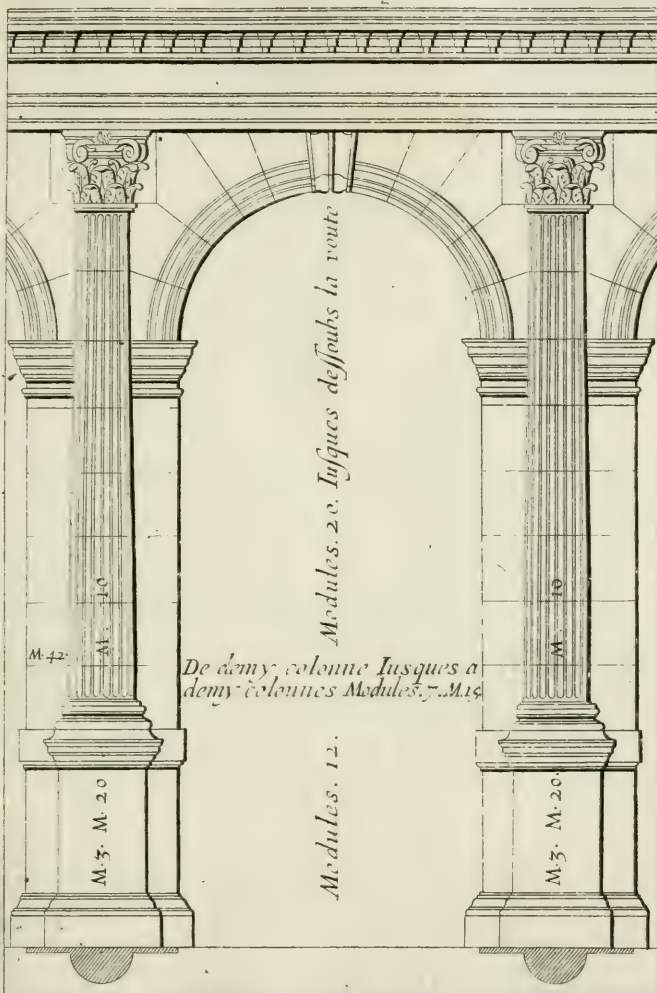 Modules. 20. Iusques dessoubs la voute
M. 10
M. 10
M. 42.
De demy colonne Iusques a
demy colonnes Modules. 7. M. 15
Modules. 12.
M. 3. M. 20
M. 3. M. 20.